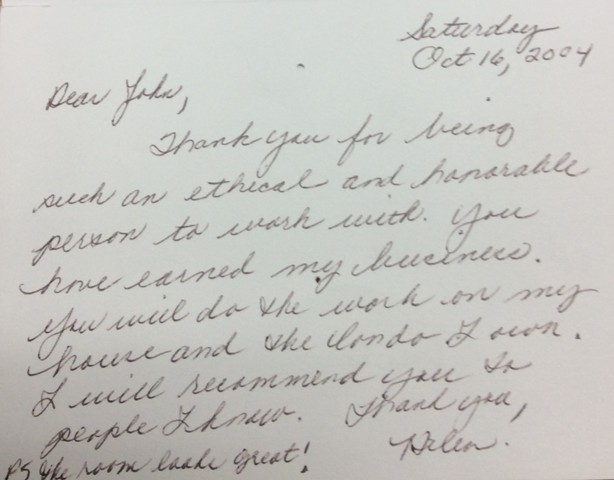 Saturday
Oct 16, 2004
Dear John,
Thank you for being
such an ethical and honorable
person to work with. You
have earned my business.
You will do the work on my
house and the Condo I own.
I will recommend you to
people I know. Thank you,
Helen.
PS The room looks great!